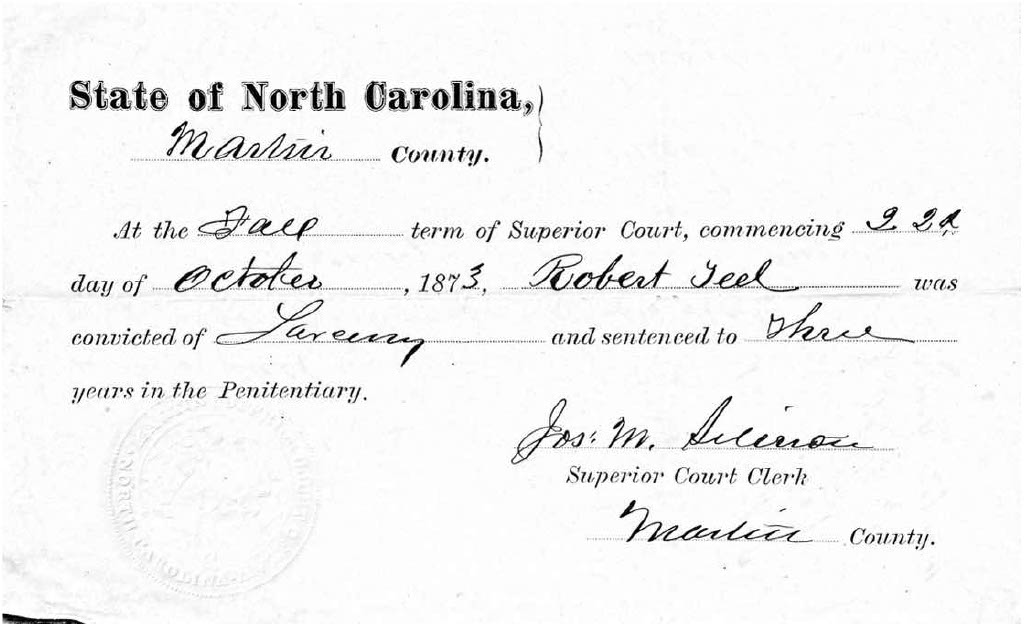 State of North Carolina,
Martin County.
At the Fall term of Superior Court, commencing 22d
day of October, 1873, Robert Teel was
convicted of Larceny and sentenced to Three
years in the Penitentiary.
Jos: M.
Superior Court Clerk
Martin County.
NORTH CAROLINA